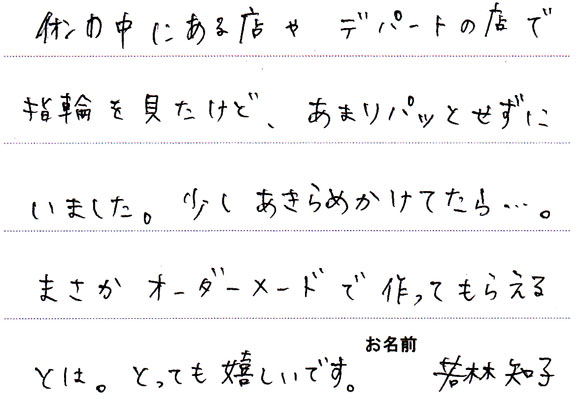 街の中にある店や デパートの店で
指輪を見たけど、あまりパッとせずに
いました。少しあきらめかけてたら…。
まさかオーダーメードで作ってもらえる
とは。とっても嬉しいです。 お名前 若林知子